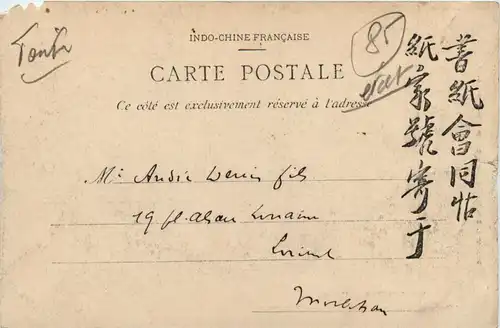 Tonkin
85
INDO-CHINE FRANÇAISE
CARTE POSTALE
Ce côté est exclusivement réservé à l'adresse
Mr André fils
19 pl. Alsace Lorraine
Lorient
Morbihan
書紙會同帖
紙家號寄于